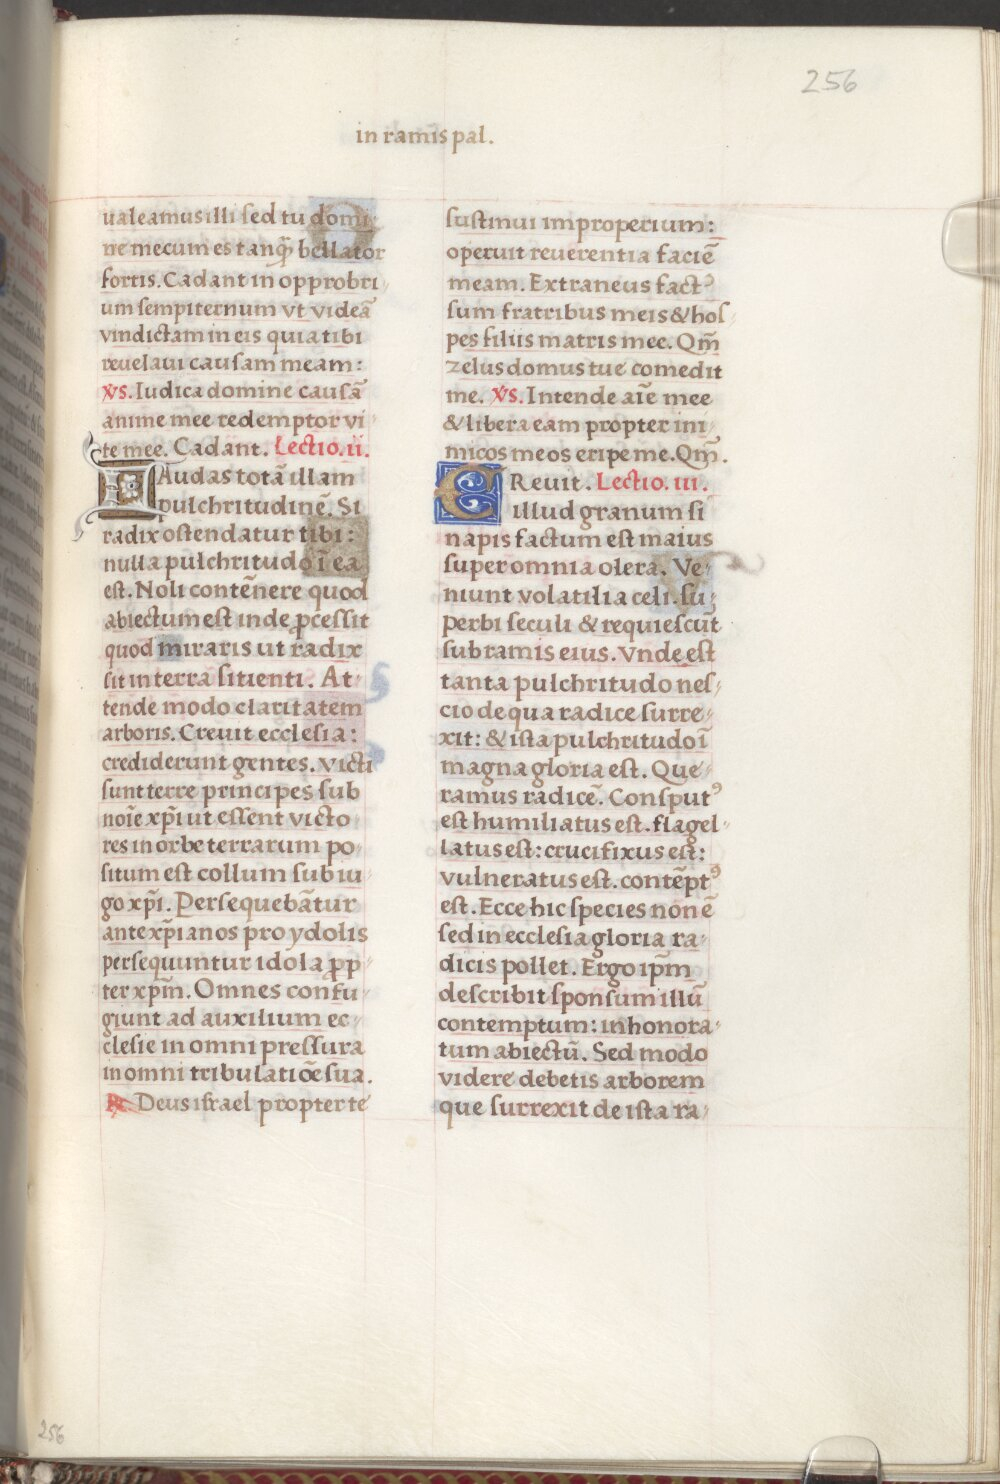 256
in ramis pal.
ualeamus illi sed tu domi
ne mecum es tanq̃ bellator
fortis. Cadant in opprobri
um sempiternum vt videã
vindictam in eis quia tibi
reuelaui causam meam:
V̉S. Iudica domine causã
anime mee redemptor vi
te mee. Cadant. Lectio. ii.
LAudas totã illam
pulchritudinẽ. Si
radix ostendatur tibi:
nulla pulchritudo ĩ ea
est. Noli contẽnere quod
abiectum est inde ꝓcessit
quod miraris ut radix
sit in terra sitienti. At
tende modo claritatem
arboris. Creuit ecclesia:
crediderunt gentes. victi
sunt terre principes sub
noĩe xp̃i ut essent victo
res in orbe terrarum po
situm est collum sub iu
go xp̃i. Persequebãtur
ante xp̃ianos pro ydolis
persequuntur idola ꝓp
ter xp̃m. Omnes confu
giunt ad auxilium ec
clesie in omni pressura
in omni tribulatiõe sua.
R̉. Deus israel propter te
sustinui improperium:
operuit reuerentia faciẽ
meam. Extraneus factꝰ
sum fratribus meis & hos
pes filiis matris mee. Qm̃
zelus domus tue comedit
me. V̉S. Intende aĩe mee
& libera eam propter ini
micos meos eripe me. Qm̃.
CReuit. Lectio. iii.
illud granum si
napis factum est maius
super omnia olera. Ve
niunt volatilia celi. su
perbi seculi & requiescũt
sub ramis eius. vnde est
tanta pulchritudo nes
cio de qua radice surre
xit: & ista pulchritudo ĩ
magna gloria est. Que
ramus radicẽ. Consputꝰ
est humiliatus est. flagel
latus est: crucifixus est:
vulneratus est. contẽptꝰ
est. Ecce hic species non ẽ
sed in ecclesia gloria ra
dicis pollet. Ergo ip̃m
describit sponsum illũ
contemptum: inhonora
tum abiectũ. Sed modo
videre debetis arborem
que surrexit de ista ra
256